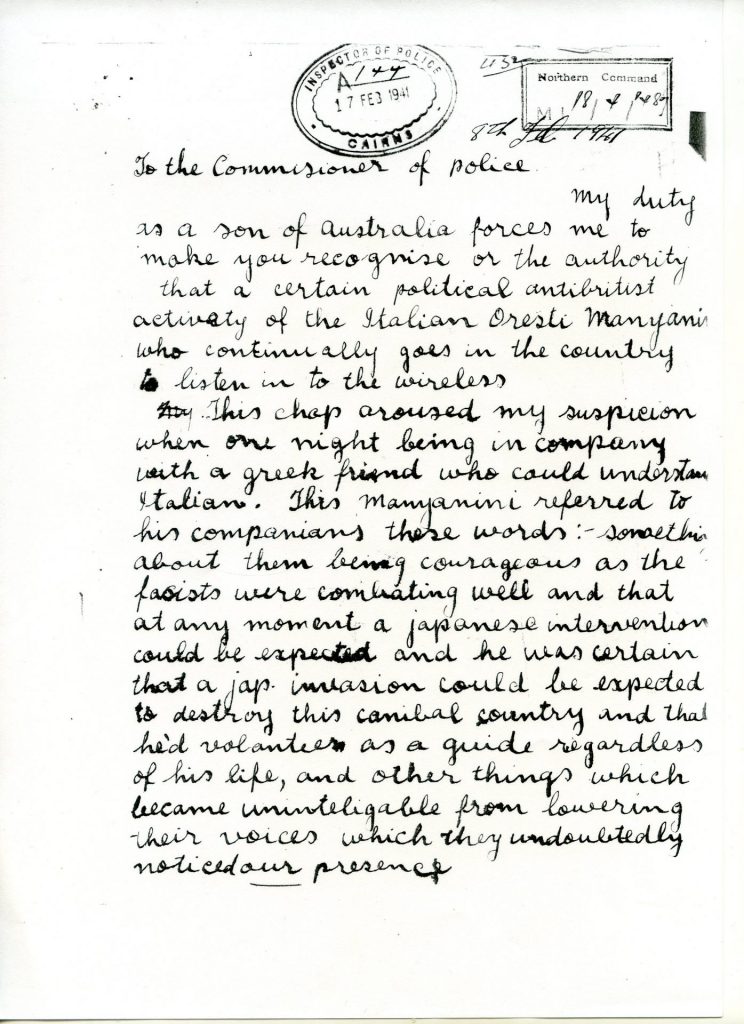 INSPECTOR OF POLICE
A 144
17 FEB 1941
CAIRNS
Northern Command
M I
8th Feb 1941
To the Commisioner of police
my duty
as a son of Australia forces me to
make you recognise or the authority
that a certain political antibritist
activaty of the Italian Oresti Manyanin
who continually goes in the country
to listen in to the wireless
This chap aroused my suspicion
when one night being in company
with a greek friend who could understan
Italian. This Manyanini referred to
his companians these words:- somethin
about them being courageous as the
facists were combating well and that
at any moment a japanese intervention
could be expected and he was certain
that a jap. invasion could be expected
to destroy this canibal country and that
he'd volanteer as a guide regardless
of his life, and other things which
became uninteligable from lowering
their voices which they undoubtedly
noticed our presence